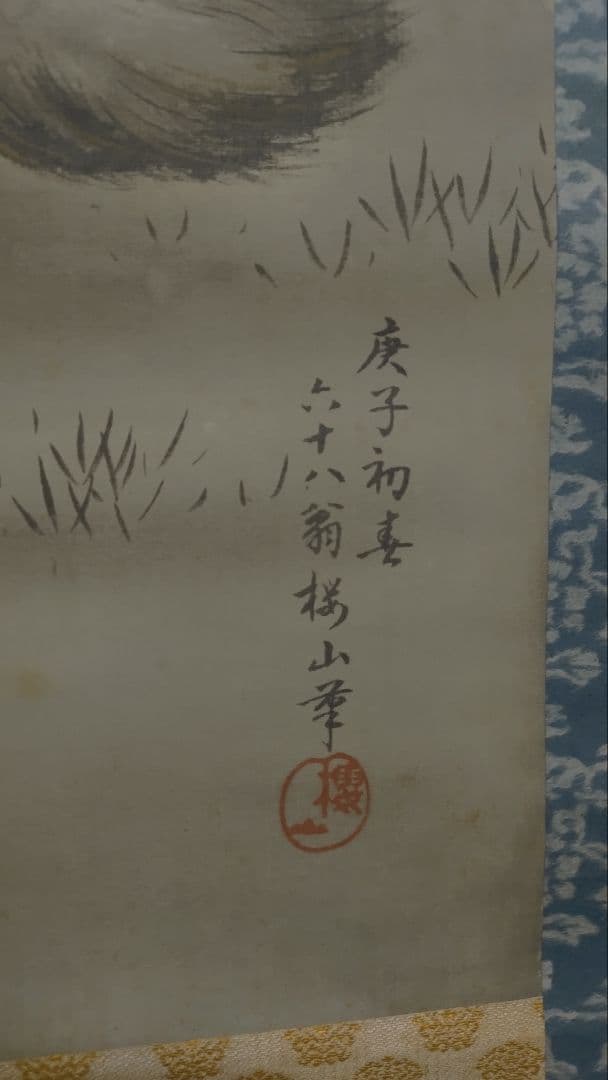 庚子初春
六十八翁桜山筆
櫻山